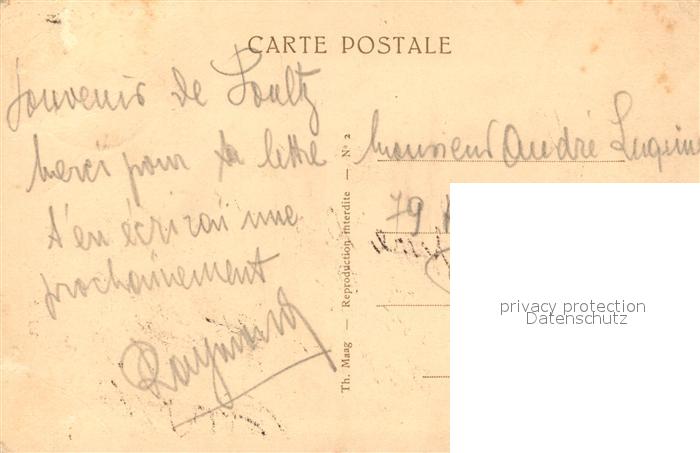 CARTE POSTALE
Souvenir de Soultz
Merci pour ta lettre
t'en écrirai une
prochainement
Raymond
Th. Maag — Reproduction interdite — No 2
Monsieur André
79
privacy protection
Datenschutz